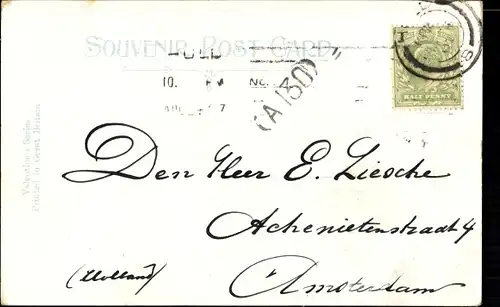 SOUVENIR POST CARD
HULL
NO. 4
(A 130)
HALF PENNY
Valentine's Series
Printed in Great Britain
Den Heer E. Liesche
Achenietenstraat 4
(Holland)
Amsterdam